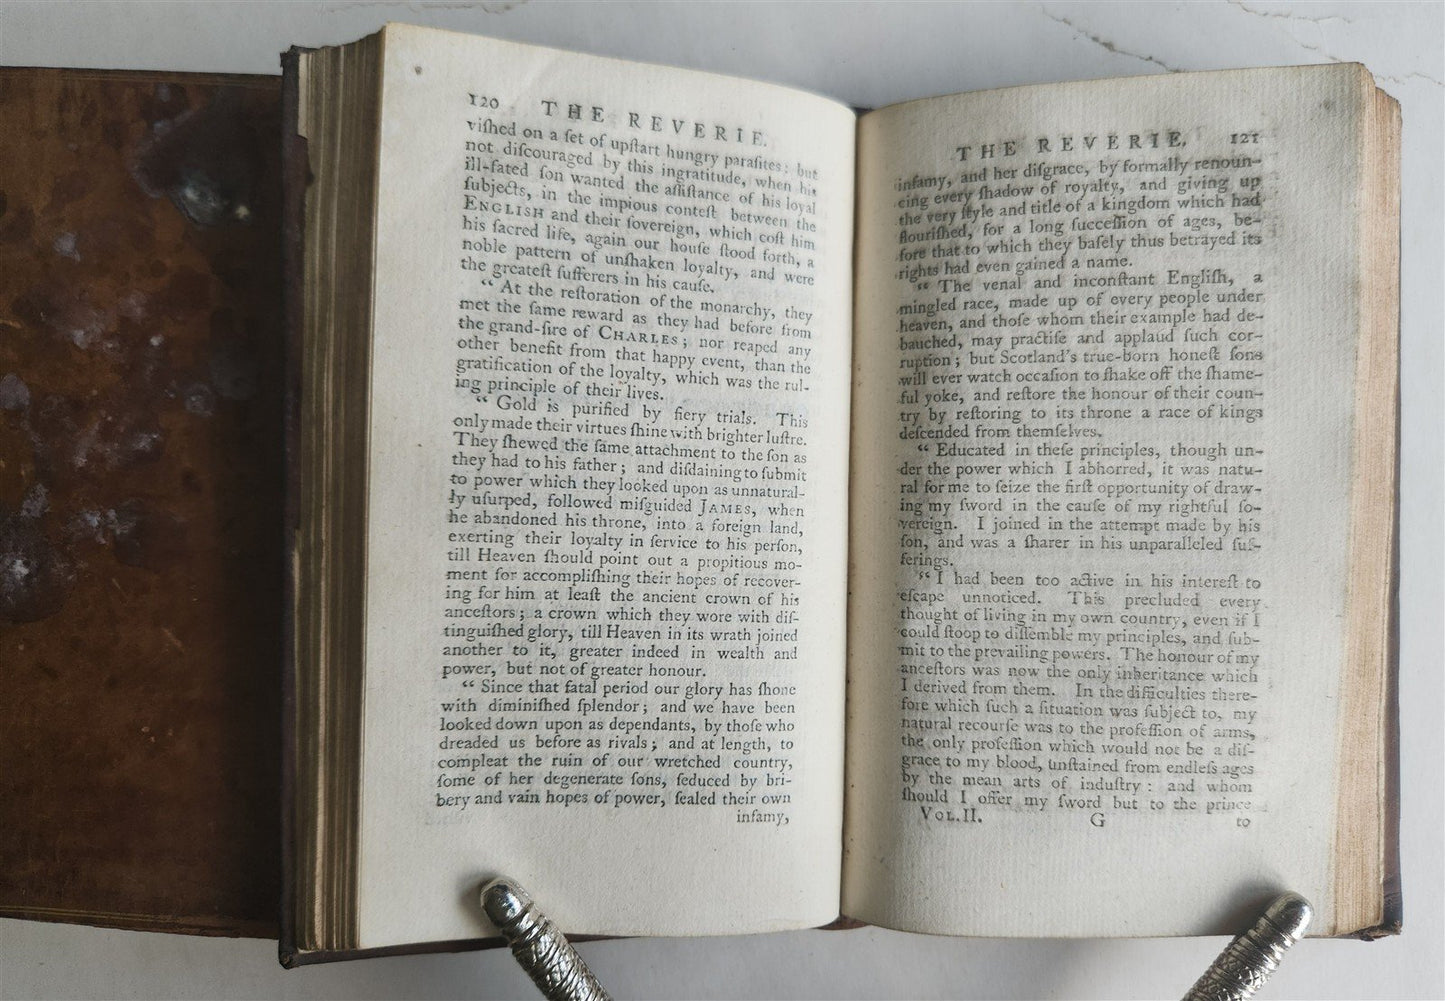 120 THE REVERIE.
viſhed on a ſet of upſtart hungry paraſites: but
not diſcouraged by this ingratitude, when his
ill-fated ſon wanted the aſſiſtance of his loyal
ſubjects, in the impious conteſt between the
ENGLISH and their ſovereign, which coſt him
his ſacred life, again our houſe ſtood forth, a
noble pattern of unſhaken loyalty, and were
the greateſt ſufferers in his cauſe.
“ At the reſtoration of the monarchy, they
met the ſame reward as they had before from
the grand-ſire of CHARLES; nor reaped any
other benefit from that happy event, than the
gratification of the loyalty, which was the rul-
ing principle of their lives.
“ Gold is purified by fiery trials. This
only made their virtues ſhine with brighter luſtre.
They ſhewed the ſame attachment to the ſon as
they had to his father; and diſdaining to ſubmit
to power which they looked upon as unnatural-
ly uſurped, followed miſguided JAMES, when
he abandoned his throne, into a foreign land,
exerting their loyalty in ſervice to his perſon,
till Heaven ſhould point out a propitious mo-
ment for accompliſhing their hopes of recover-
ing for him at leaſt the ancient crown of his
anceſtors; a crown which they wore with diſ-
tinguiſhed glory, till Heaven in its wrath joined
another to it, greater indeed in wealth and
power, but not of greater honour.
“ Since that fatal period our glory has ſhone
with diminiſhed ſplendor; and we have been
looked down upon as dependants, by thoſe who
dreaded us before as rivals; and at length, to
compleat the ruin of our wretched country,
ſome of her degenerate ſons, ſeduced by bri-
bery and vain hopes of power, ſealed their own
infamy,
THE REVERIE. 121
infamy, and her diſgrace, by formally renoun-
cing every ſhadow of royalty, and giving up
the very ſtyle and title of a kingdom which had
flouriſhed, for a long ſucceſſion of ages, be-
fore that to which they baſely thus betrayed its
rights had even gained a name.
“ The venal and inconſtant Engliſh, a
mingled race, made up of every people under
heaven, and thoſe whom their example had de-
bauched, may practiſe and applaud ſuch cor-
ruption; but Scotland's true-born honeſt ſons
will ever watch occaſion to ſhake off the ſhame-
ful yoke, and reſtore the honour of their coun-
try by reſtoring to its throne a race of kings
deſcended from themſelves.
“ Educated in theſe principles, though un-
der the power which I abhorred, it was natu-
ral for me to ſeize the firſt opportunity of draw-
ing my ſword in the cauſe of my rightful ſo-
vereign. I joined in the attempt made by his
ſon, and was a ſharer in his unparalleled ſuf-
ferings.
“ I had been too active in his intereſt to
eſcape unnoticed. This precluded every
thought of living in my own country, even if I
could ſtoop to diſſemble my principles, and ſub-
mit to the prevailing powers. The honour of my
anceſtors was now the only inheritance which
I derived from them. In the difficulties there-
fore which ſuch a ſituation was ſubject to, my
natural recourſe was to the profeſſion of arms,
the only profeſſion which would not be a diſ-
grace to my blood, unſtained from endleſs ages
by the mean arts of induſtry: and whom
ſhould I offer my ſword but to the prince
VOL. II. G to